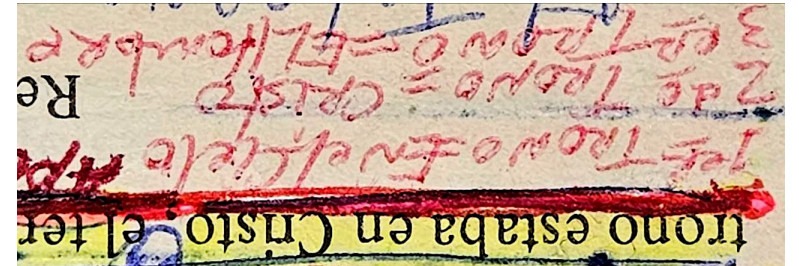 trono estaba en Cristo; el ter
1er TRONO EN el Cielo
2do TRONO = CRISTO Re
3er TRONO = El Hombre